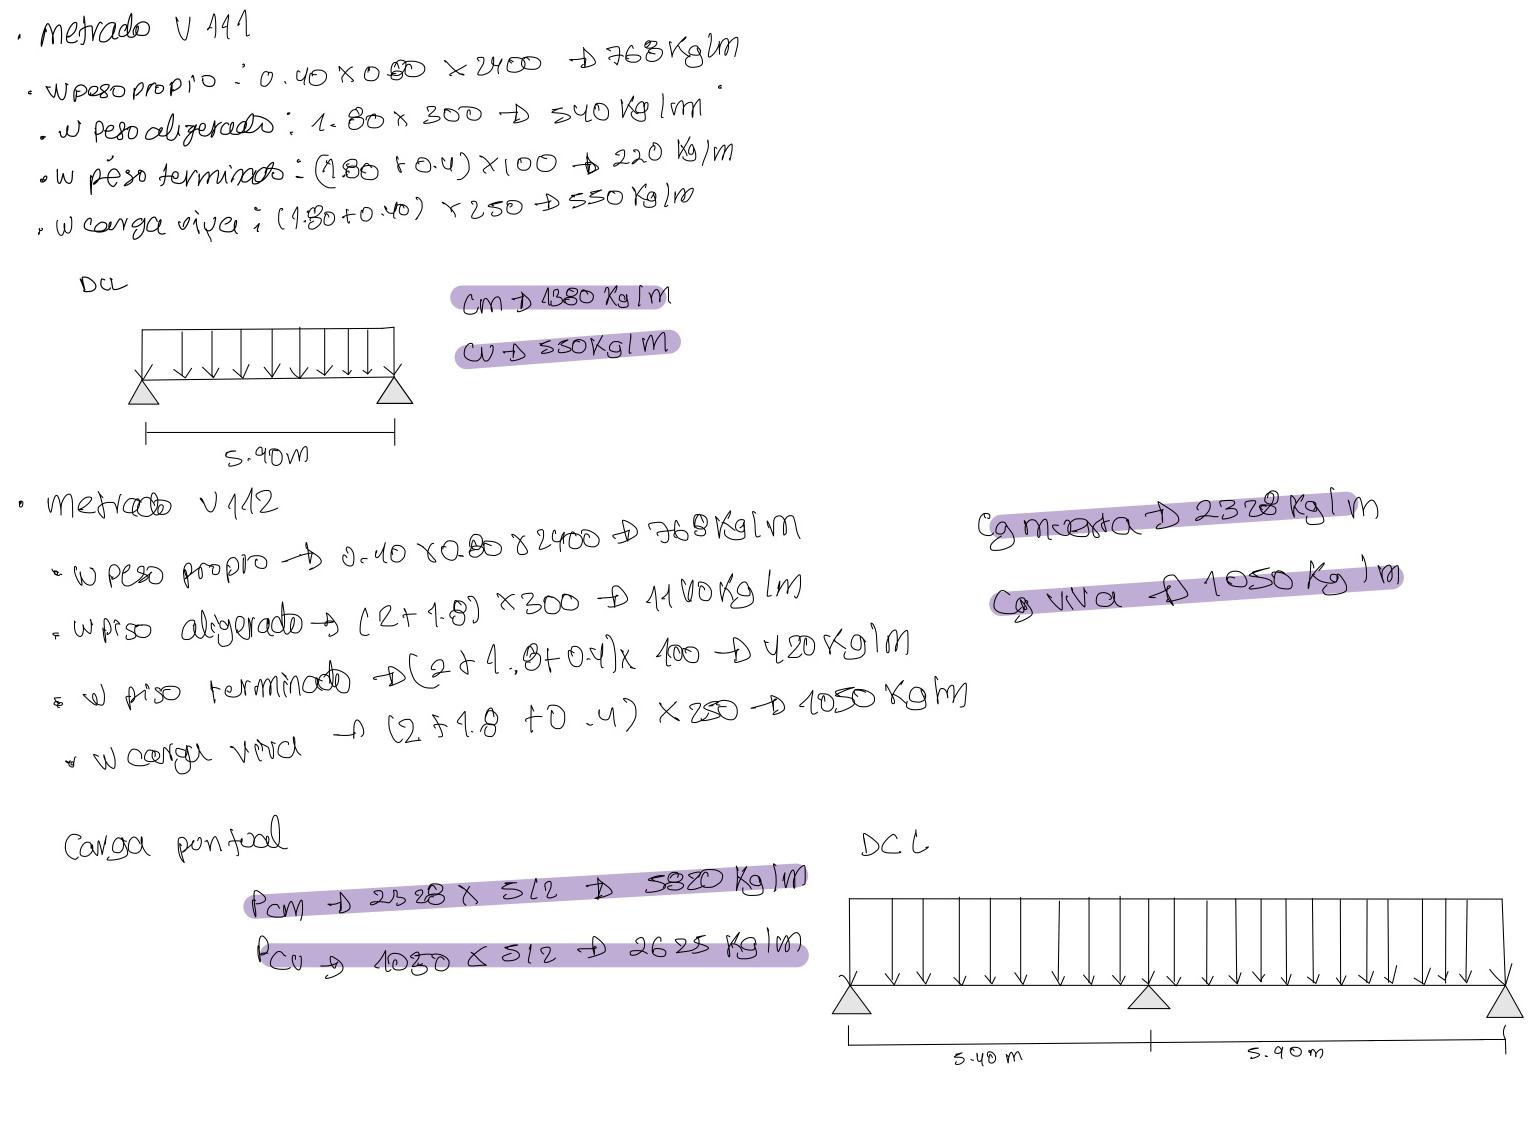 . metrado V 111
. w peso propio : 0.40 x 0.80 x 2400 → 768 Kg/m
. w peso aligerado : 1.80 x 300 → 540 Kg/m
. w péso terminado : (1.80 + 0.4) x 100 → 220 Kg/m
. w carga viva : (1.80+0.40) x 250 → 550 Kg/m
DCL
Cm → 1380 Kg/m
CV → 550 Kg/m
5.90m
. metrado V112
. w peso propio → 0.40 x 0.80 x 2400 → 768 Kg/m
. w piso aligerado → (2+1.8) x 300 → 1140 Kg/m
. w piso terminado → (2+1.8+0.4) x 100 → 420 Kg/m
. w carga viva → (2+1.8+0.4) x 250 → 1050 Kg/m
Cg muerta → 2328 Kg/m
Cg viva → 1050 Kg/m
Carga pontual
Pcm → 2328 x 5/2 → 5820 Kg/m
Pcv → 1050 x 5/2 → 2625 Kg/m
DCL
5.40 m
5.90m